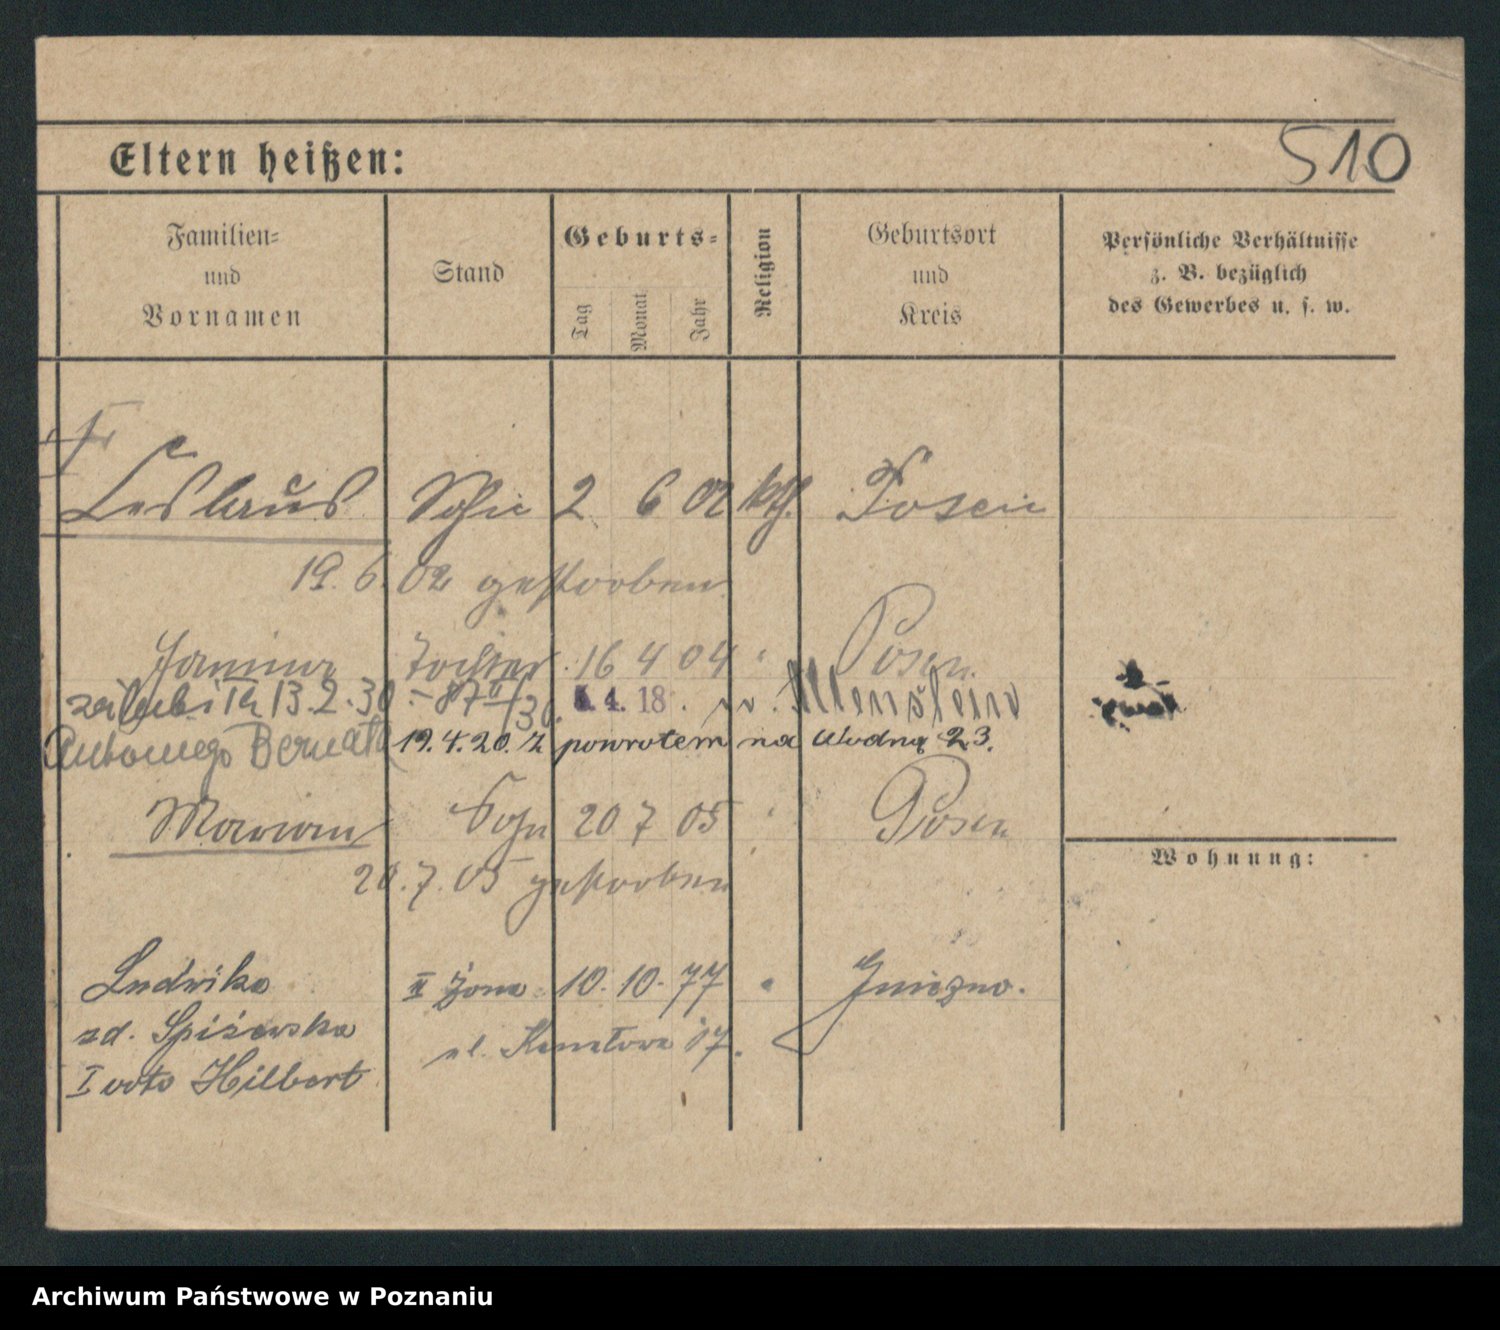 510
Eltern heißen:
Familien-
und
Vornamen
Stand
Geburts-
Tag
Monat
Jahr
Religion
Geburtsort
und
Kreis
Persönliche Verhältnisse
z. B. bezüglich
des Gewerbes u. s. w.
Leslaus Sohn 2 6 02 kth. Posen
19. 6. 02 gestorben
Janina Tochter 16 4 04 " Posen
13.2.30 4. 18. Allenstein
Antoniego 19. 4. 20. z powrotem na Wodną 23.
Marian Sohn 20 7 05 " Posen
20. 7. 05 gestorben
Wohnung:
Ludwika II żona 10. 10. 77 " Gniezno.
zd. Spiżewska ul. Kanałowa 17.
I voto Hilbert
Archiwum Państwowe w Poznaniu